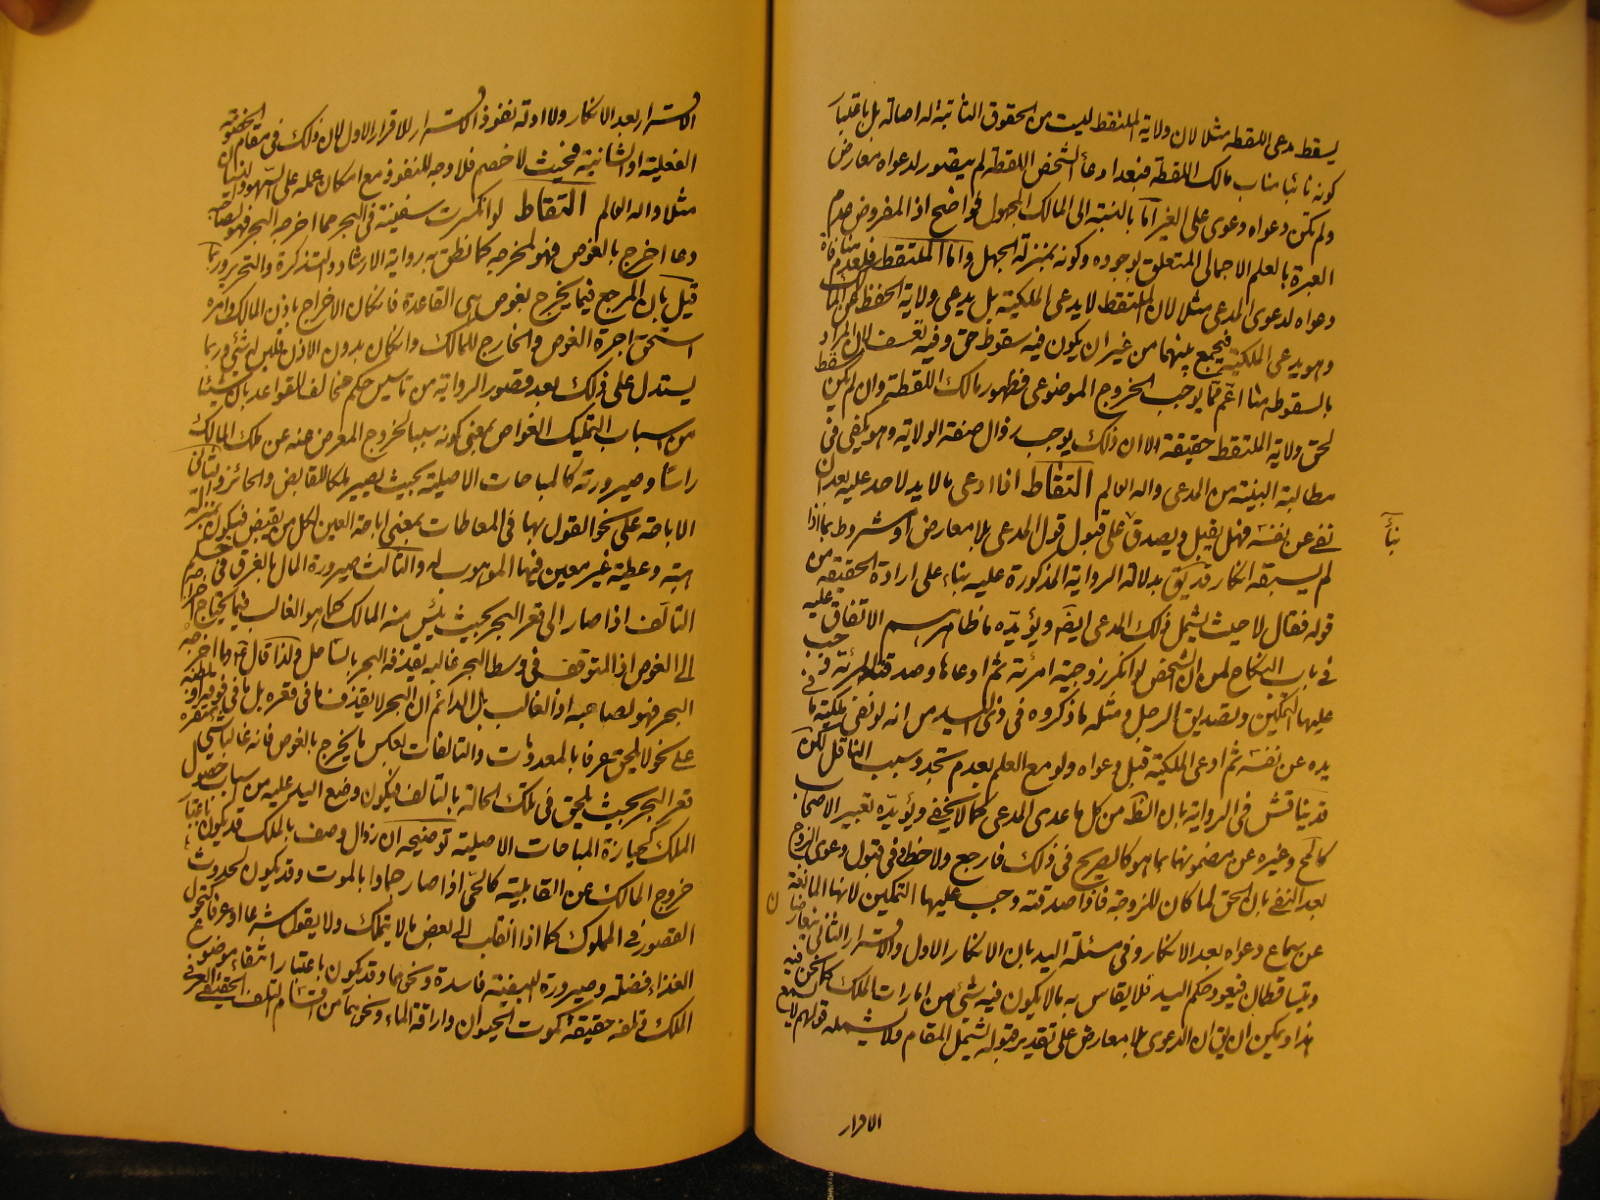 يسقط بدعى اللقطه مثلا لان ولاية الملتقط ليست من الحقوق الثابتة له اصالة بل باعتبار
كونه نائبا مناب مالك اللقطة فبعد ادعاء الشخص اللقطة لم يتصور لدعواه معارض
ولم تكن دعواه دعوى على الغير اما بالنسبة الى المالك المجهول فواضح اذ المفروض عدم
العبرة بالعلم الاجمالى المتعلق بوجوده وكونه بمنزلة الجهل واما الملتقط فلعدم منافاة
دعواه لدعوى المدعى مثلا لان الملتقط لا يدعى الملكية بل يدعى ولاية الحفظ عن المالك
وهو يدعى الملكية فيجمع بينهما من غير ان يكون فيه سقوط حق وفيه تعسف لان المراد
بالسقوط هنا اعم مما يوجب الخروج الموضوعى فظهور مالك اللقطة وان لم يكن مسقط
لحق ولاية الملتقط حقيقة الا ان ذلك يوجب زوال صفة الولاية وهو يكفى فى
مطالبة البينة من المدعى والله العالم التقاط اذا ادعى بالا يد لاحد عليه بعد ان
نفى عن نفسه فهل يقبل ويصدق على قبول قول المدعى بلا معارض او مشروط بما اذا
لم يسبقه انكار قد يق بدلالة الرواية المذكورة عليه بناء على ارادة الحقيقة من
قوله فقال لا حيث يشمل ذلك المدعى ايضا ويؤيده ما ظاهرهم الاتفاق عليه
فى باب النكاح من ان الشخص لو انكر زوجية امرئة ثم ادعاها وصدقته المرئة وجب
عليها التمكين وتصديق الرجل ومثله ما ذكروه فى ذى اليد من انه لو نفى ملكية ما فى
يده عن نفسه ثم ادعى الملكية قبل دعواه ولو مع العلم بعدم تجدد سبب الناقل لكن
قد يناقش فى الرواية بان الظ من كل ما عدى المدعى كما لا يخفى ويؤيده تعبير الاصحاب
كالمح وغيره عن مضمونها بما هو كالصريح فى ذلك فارجع ولاحظ وفى قبول دعوى الزوج
بعد النفى بان الحق لما كان للزوجة فاذا صدقته وجب عليها التمكين لانها المانعة
عن سماع دعواه بعد الانكار وفى مسئلة اليد بان الانكار الاول والاقرار الثانى يتعارضان
ويتساقطان فيعود حكم اليد فلا يقاس به ما لا يكون فيه شئ من امارات الملك كما نحن فيه
هذا ويمكن ان يق ان الدعوى بلا معارض على تقدير قبوله تشمل المقام ولا يشمله قولهم لا يسمع
الاقرار
الاقرار بعد الانكار ولا ادلة نفوذ الاقرار للاقرار الاول لان ذلك فى مقام الخصومة
الفعلية او الشانية فحيث لا خصم فلا وجه للنفوذ مع امكان حمله على السهو والنسيان
مثلا والله العالم التقاط لو انكسرت سفينة فى البحر فما اخرجه البحر فهو لصاحبه
وما اخرج بالغوص فهو لمخرجه كما نطق به رواية الارشاد والتذكرة والتحرير وربما
قيل بان المرجع فيما يخرج بغوص هى القاعدة فان كان الاخراج باذن المالك وامره
استحق اجرة الغوص والخارج للمالك وان كان بدون الاذن فليس له شئ وربما
يستدل على ذلك بعد قصور الرواية من تاسيس حكم مخالف للقواعد بان شيئا
من اسباب التمليك الغواص بمعنى كونه سببا لخروج المعرض عنه عن ملك المالك
راسا وصيرورته كالمباحات الاصلية بحيث يصير ملكا للقابض والحائز والثانى
الاباحة على نحو القول بها فى المعاطات بمعنى اباحة العين لكل من يقبض فيكون بمنزلة
هبة وعطية غير معين فيها الموهوب له والثالث صيرورة المال بالغرق فى حكم
التالف اذا صار الى قعر البحر بحيث يئس منه المالك كما هو الغالب فيما يحتاج اخراجه
الى الغوص اذ المتوقف فى وسط البحر غالبه يقذفه البحر بالساحل ولذا قال وما اخرجه
البحر فهو لصاحبه اذ الغالب بل الدائم ان البحر لا يقذف ما فى قعره بل ما فى
على نحو لا يلحق عرفا بالمعدومات والتالفات بعكس ما يخرج بالغوص فانه غالبا يستقر
قعر البحر بحيث يلحق فى تلك الحالة بالتالف فيكون وضع اليد عليه من سباب حصول
الملك كحيازة المباحات الاصلية توضيحه ان زوال وصف بالملك قد يكون باعتبار
خروج المالك عن القابلية كالحى اذا صار جمادا بالموت وقد يكون لحدوث
القصور فى المملوك كما اذا انقلب الى بعض ما لا يتملك ولا يقول شرعا او عرفا كتحول
الغذاء فضلة وصيرورة البيضة فاسدة ونحوهما وقد يكون باعتبار انتفاء موضوع
الملك وتلفه حقيقة كموت الحيوان واراقة الماء ونحوهما من اقسام التلف الحقيقى